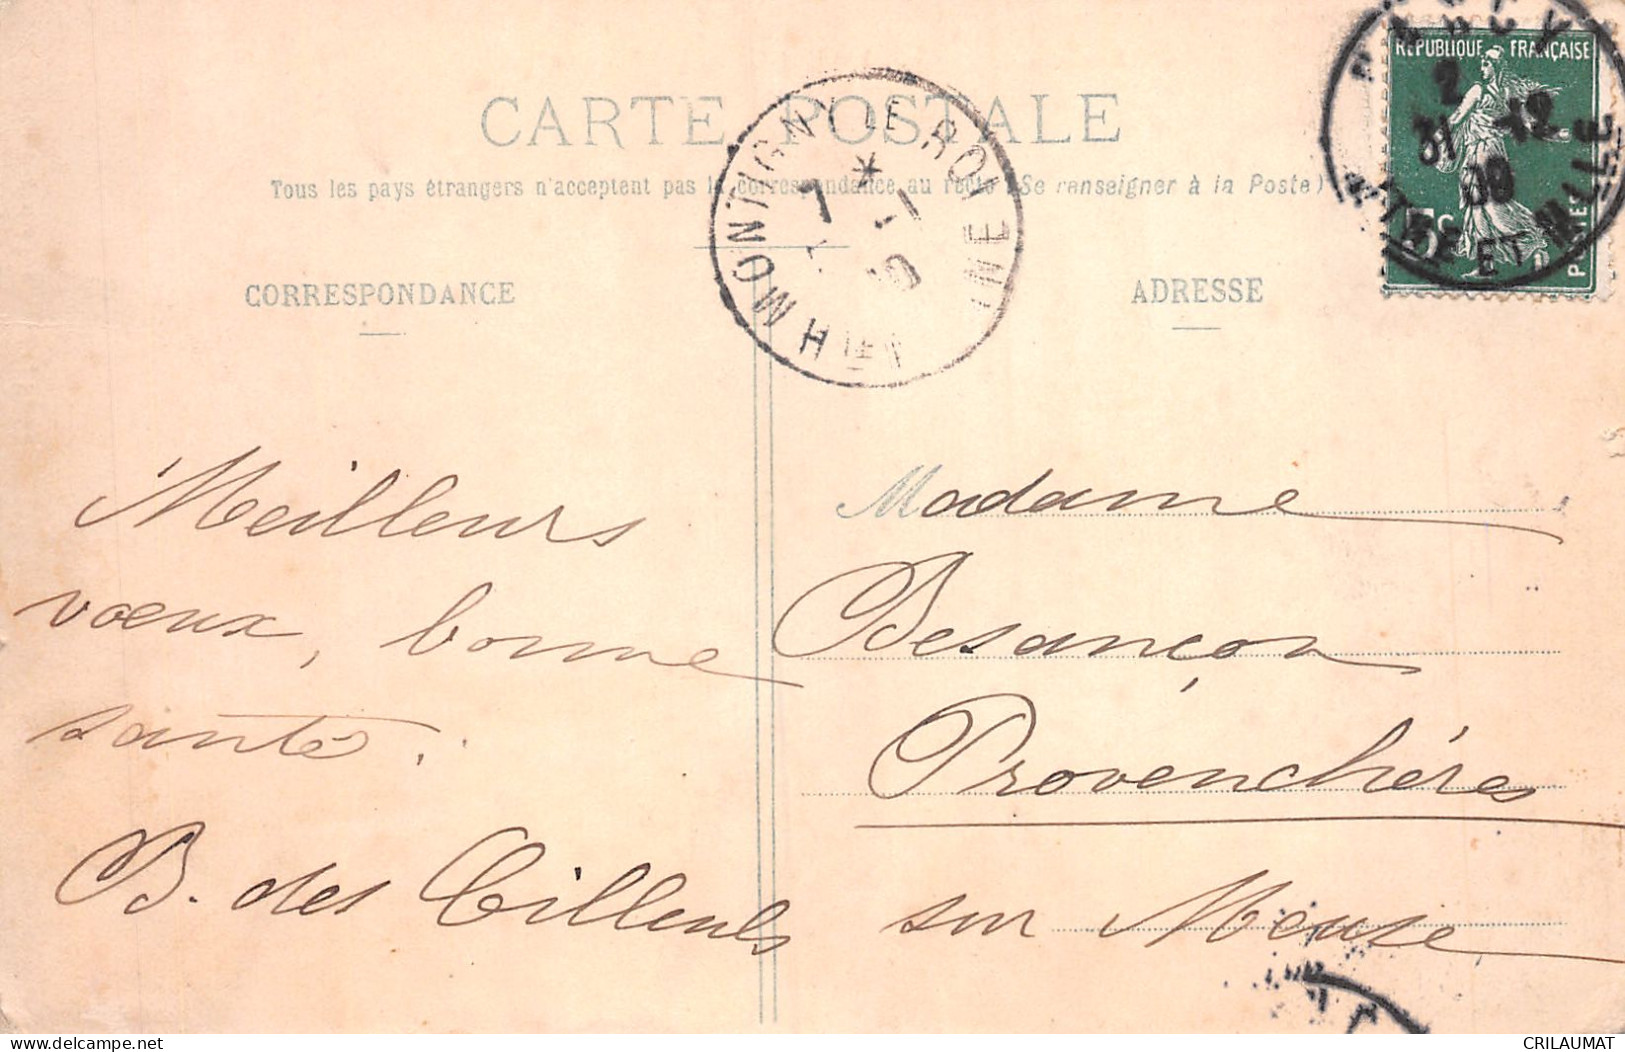 CARTE POSTALE
Tous les pays étrangers n'acceptent pas la correspondance au recto (Se renseigner à la Poste)
CORRESPONDANCE
ADRESSE
RÉPUBLIQUE FRANÇAISE
5c
POSTES
2
31 -12
09
MTHE ET MLLE
MONTIGNY LE ROI
HTE MNE
7 * 1-1
10
Meilleurs
vœux, bonne
santé.
B. des Tilleuls
Madame
Besançon
Provenchères
sur Meuse
CRILAUMAT